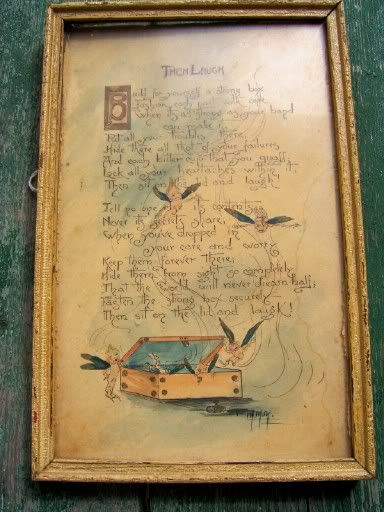 THEN LAUGH
Build for yourself a strong box
Fashion each part with care
When it's as strong as your hand
can make it
Put all your troubles there,
Hide there all thot of your failures
And each bitter cup that you quaff
Lock all your heartaches within it,
Then sit on the lid and laugh!
Tell no one else its contents
Never its secrets share,
When you've dropped in
your care and worry
Keep them forever there;
Hide them from sight so completely
That the world will never dream half;
Fasten the strong box securely-
Then sit on the lid and laugh!